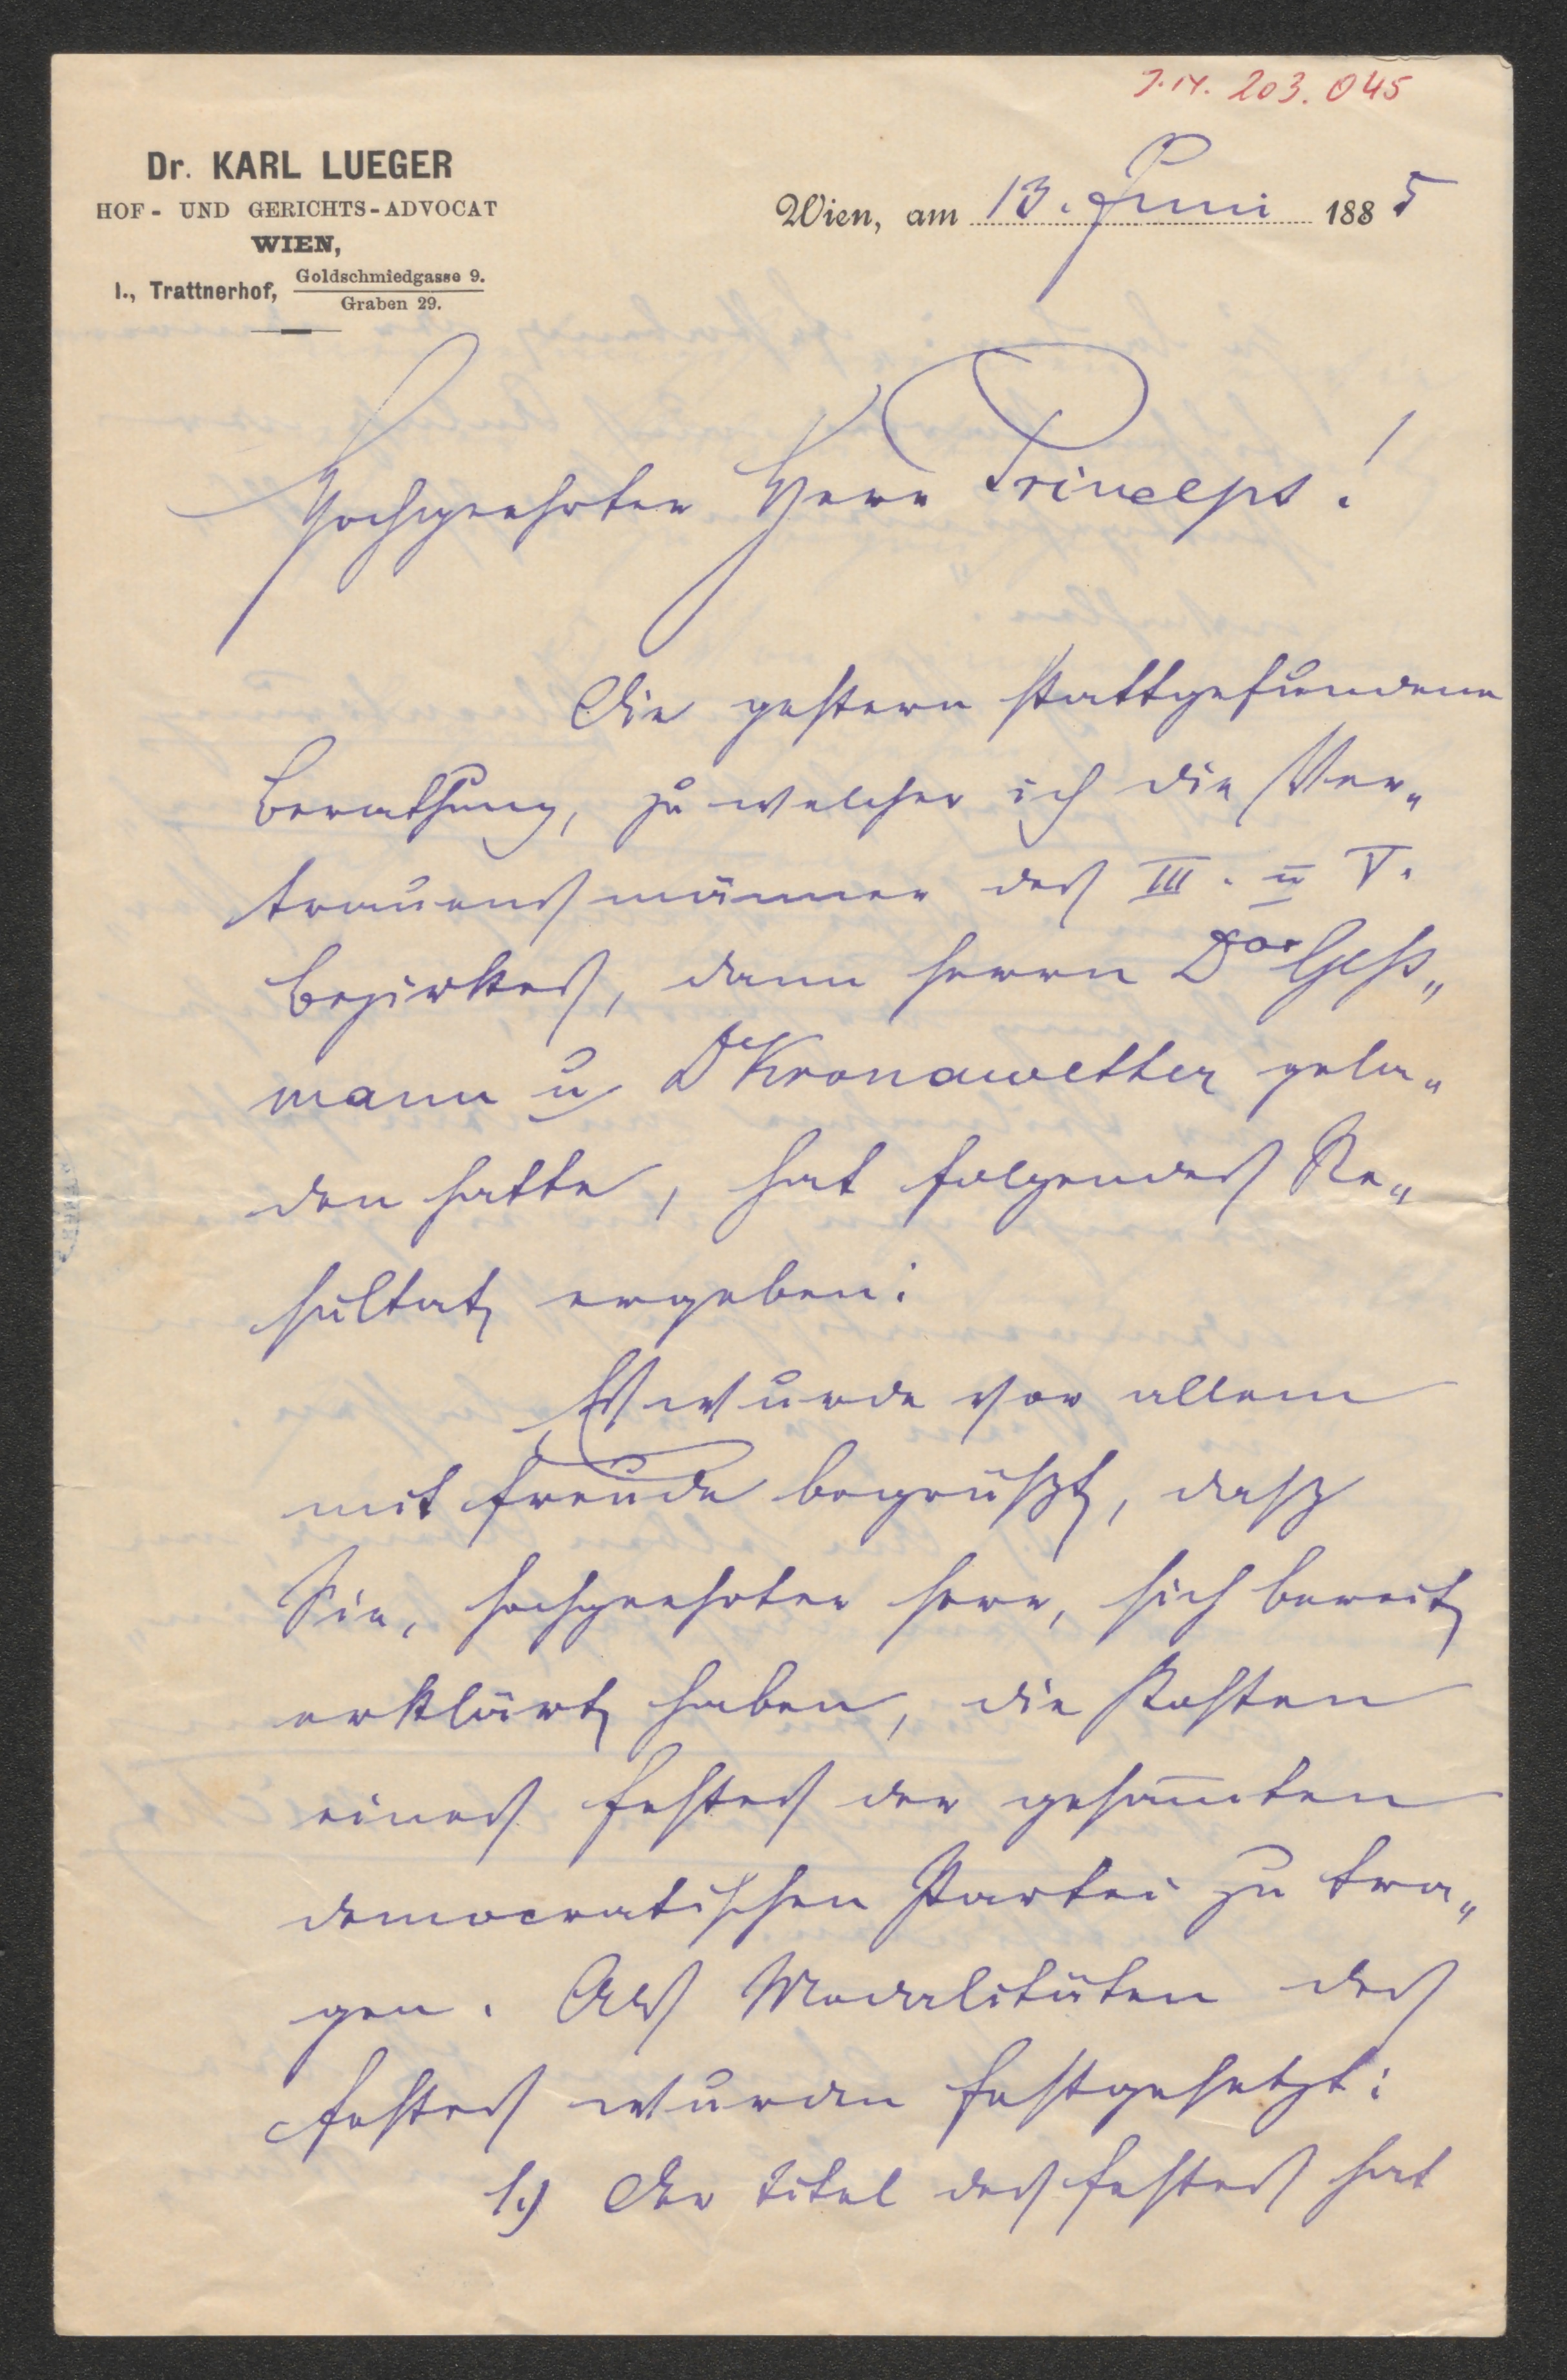 J.N. 203.045
Dr. KARL LUEGER
HOF- UND GERICHTS-ADVOCAT
WIEN,
I., Trattnerhof, Goldschmiedgasse 9.
Graben 29.
Wien, am 13. Juni 1885
Hochgeehrter Herr Princeps!
Die gestern stattgefundene
Berathung, zu welcher ich die Ver„
trauensmänner des III. u V.
Bezirkes, dann Herrn Dor Geß„
mann u Dr Kronawetter gela„
den hatte, hat folgendes Re„
sultat ergeben:
Es wurde vor allem
mit Freude begrüßt, daß
Sie, hochgeehrter Herr, sich bereit
erklärt haben, die Kosten
eines Festes der gesam̅ten
democratischen Partei zu tra„
gen. Als Modalitäten des
Festes wurden festgesetzt:
1.) Der Titel des Festes hat